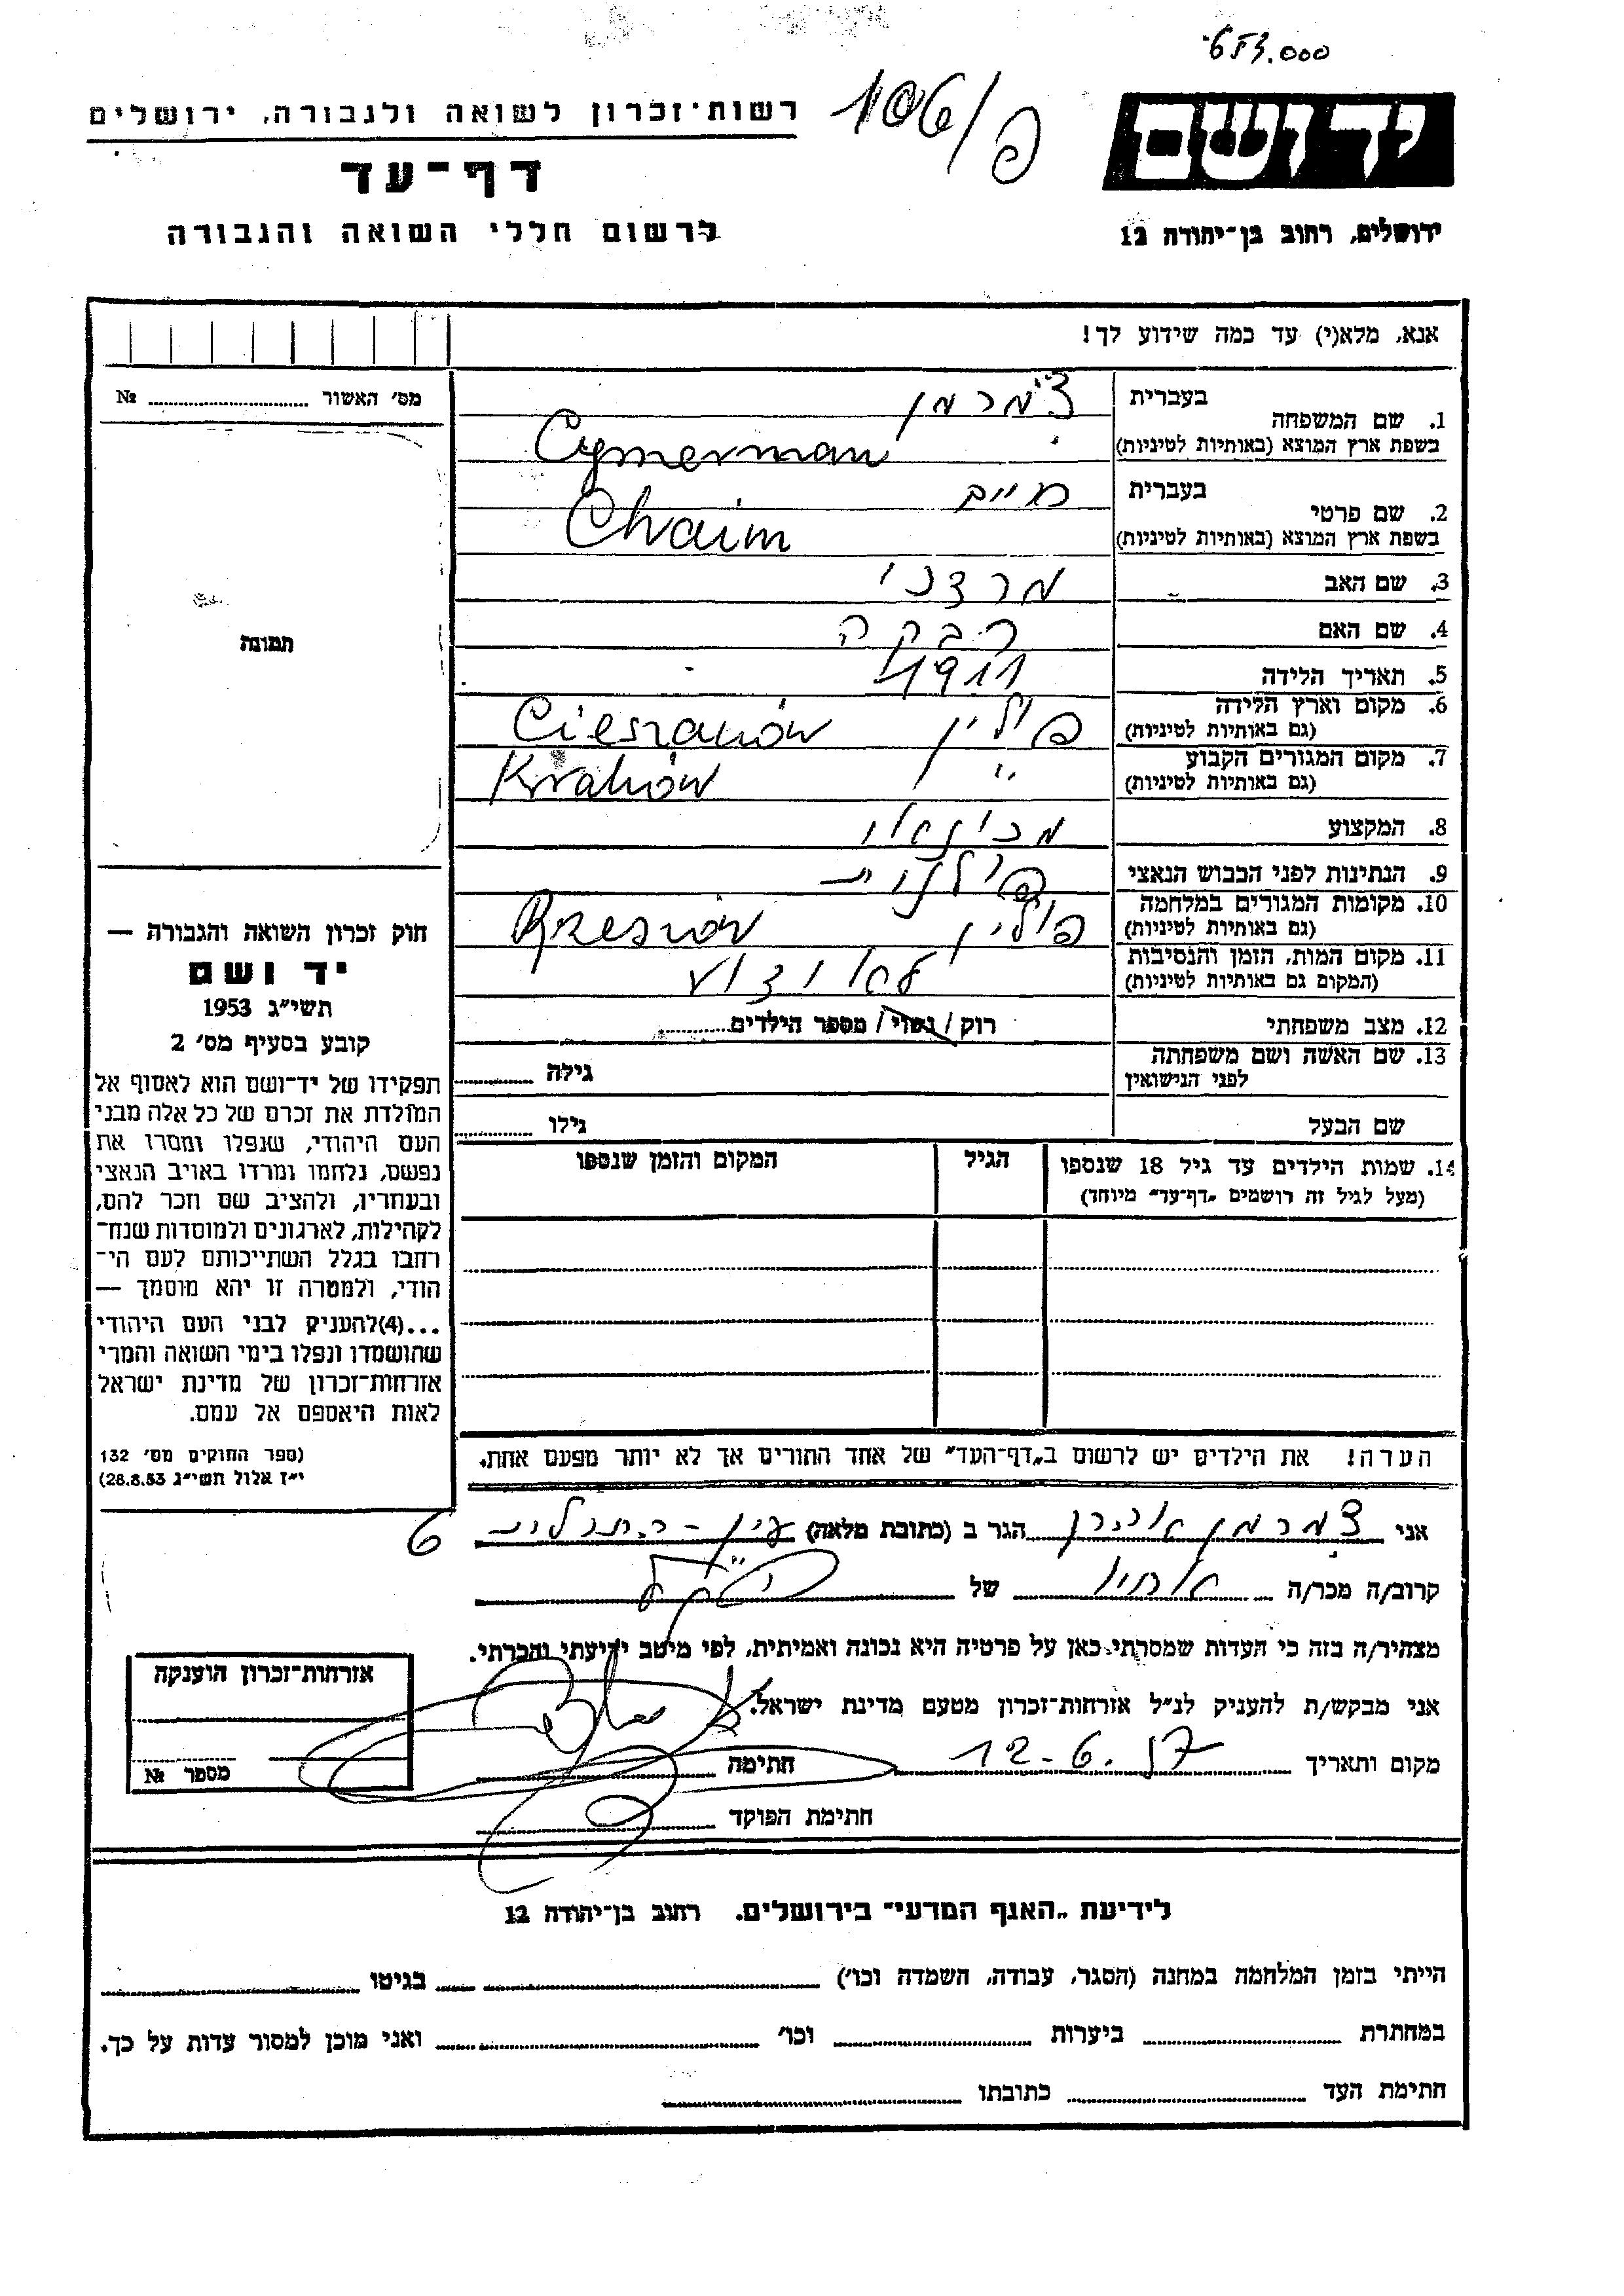 653.000
106/פ
רשות־זכרון לשואה ולגבורה, ירושלים
יד ושם
דף־עד
לרשום חללי השואה והגבורה
ירושלים, רחוב בן־יהודה 12
אנא, מלא(י) עד כמה שידוע לך!
מס׳ האשור № 
1. שם המשפחה
בעברית צימרמן
בשפת ארץ המוצא (באותיות לטיניות) Cymerman
2. שם פרטי
בעברית חיים
בשפת ארץ המוצא (באותיות לטיניות) Chaim
3. שם האב מרדכי
4. שם האם רבקה
5. תאריך הלידה 1911
6. מקום וארץ הלידה פולין Cieszanów
(גם באותיות לטיניות)
7. מקום המגורים הקבוע " Kraków
(גם באותיות לטיניות)
8. המקצוע מכונאי
9. הנתינות לפני הכבוש הנאצי פולנית
10. מקומות המגורים במלחמה פולין Rzesów
(גם באותיות לטיניות)
11. מקום המות, הזמן והנסיבות לא ידוע
(המקום גם באותיות לטיניות)
12. מצב משפחתי רוק / נשוי / מספר הילדים
13. שם האשה ושם משפחתה גילה
לפני הנישואין
שם הבעל גילו
14. שמות הילדים עד גיל 18 שנספו הגיל המקום והזמן שנספו
(מעל לגיל זה רושמים „דף־עד" מיוחד)
הערה! את הילדים יש לרשום ב„דף־העד" של אחד ההורים אך לא יותר מפעם אחת.
תמונה
חוק זכרון השואה והגבורה —
יד ושם
תשי״ג 1953
קובע בסעיף מס׳ 2
תפקידו של יד־ושם הוא לאסוף אל
המולדת את זכרם של כל אלה מבני
העם היהודי, שנפלו ומסרו את
נפשם, נלחמו ומרדו באויב הנאצי
ובעוזריו, ולהציב שם וזכר להם,
לקהילות, לארגונים ולמוסדות שנח־
רחבו בגלל השתייכותם לעם הי־
הודי, ולמטרה זו יהא מוסמך —
...(4)להעניק לבני העם היהודי
שהושמדו ונפלו בימי השואה והמרי
אזרחות־זכרון של מדינת ישראל
לאות היאספם אל עמם.
(ספר החוקים מס׳ 132
י״ז אלול תשי״ג 28.8.53)
אני צימרמן אהרן הגר ב (כתובת מלאה) עין־התכלת 6
קרוב/ה מכר/ה אחיו של
מצהיר/ה בזה כי העדות שמסרתי כאן על פרטיה היא נכונה ואמיתית, לפי מיטב ידיעתי והכרתי.
אני מבקש/ת להעניק לנ״ל אזרחות־זכרון מטעם מדינת ישראל.
מקום ותאריך 12-6.57 חתימה
חתימת הפוקד
אזרחות־זכרון הוענקה
מספר №
לידיעת „האגף המדעי" בירושלים. רחוב בן־יהודה 12
הייתי בזמן המלחמה במחנה (הסגר, עבודה, השמדה וכו׳) בגיטו
במחתרת ביערות וכו׳ ואני מוכן למסור עדות על כך.
חתימת העד כתובתו